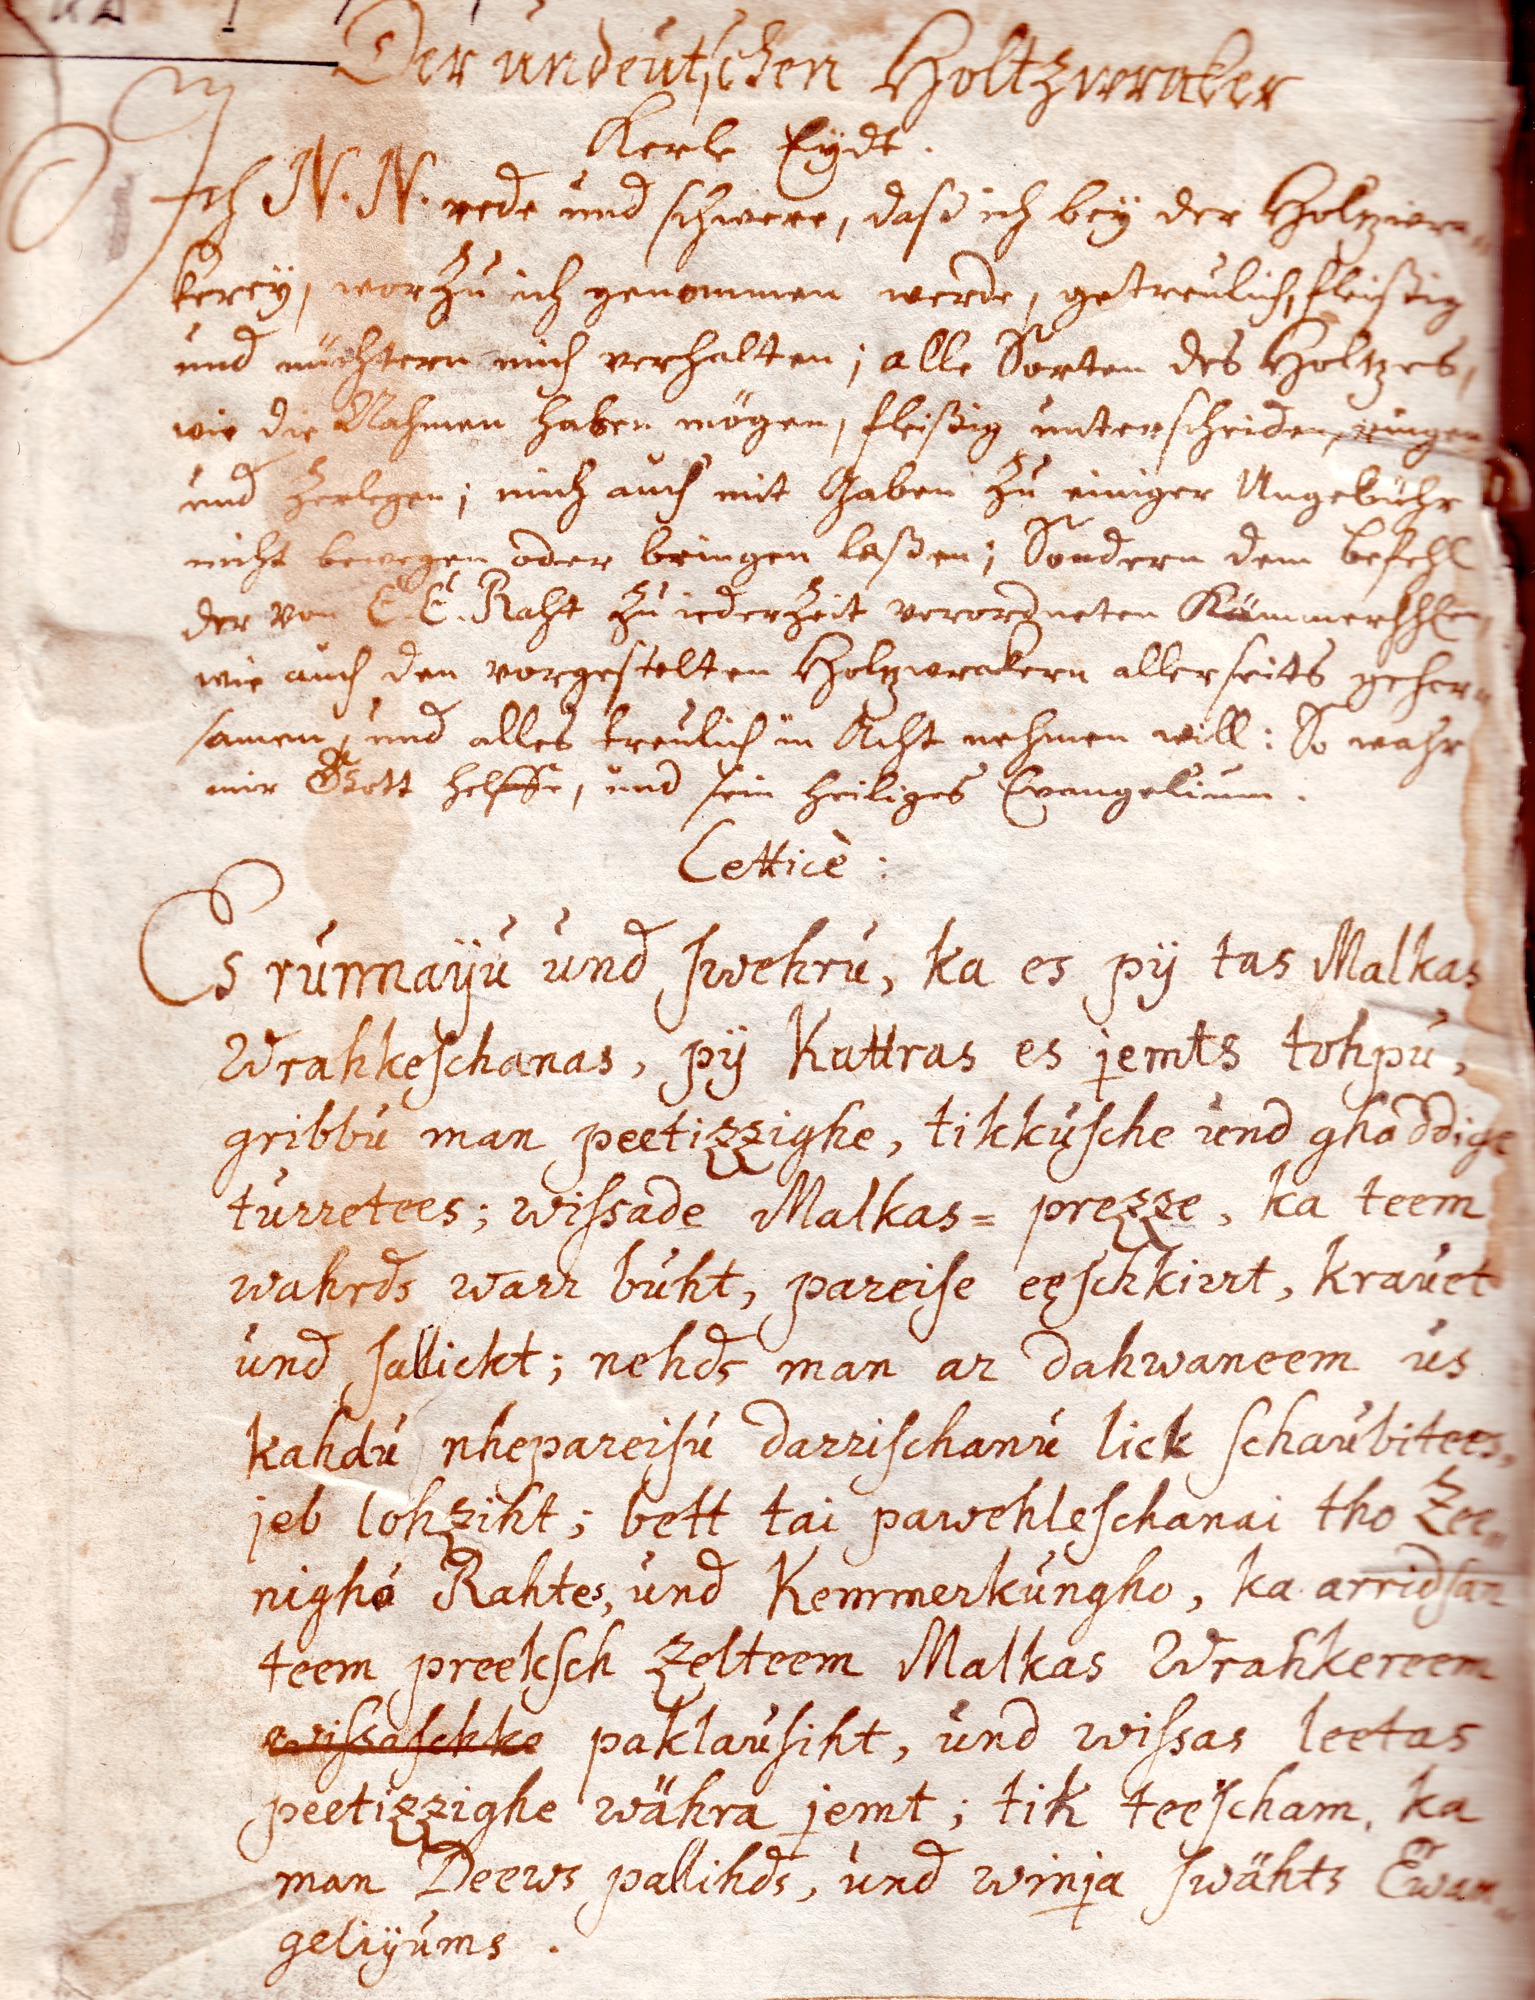 Der undeutschen Holtzwraker
Kerle Eydt.
Ich N. N. rede und schwere, daß ich bey der Holtzwra-
kerey, worzu ich genommen werde, getreulich, fleißig
und nüchtern mich verhalten; alle Sorten des Holtzes,
wie die Nahmen haben mögen, fleißig unterscheiden,
und zerlegen; mich auch mit Gaben zu einiger Ungebühr
nicht bewegen oder bringen laßen; Sondern dem befehl
der von E. E. Raht zu iederzeit verordneten
wie auch den vorgestelten Holtzwrakern allerseits gehor-
samen, und alles treulich in Acht nehmen will: So wahr
mir Gott helffe, und sein heiliges Evangelium.
Letticè:
Es runnayu und swehru, ka es py tas Malkas
Wrahkeschanas, py Kattras es jemts tohpu,
gribbu man peetizzighe, tikkusche und ghoddige
turretees; wissade Malkas= prezze, ka teem
wahrds warr buht, pareise eeschkirrt, krauet
und sallickt; nehds man ar dahwaneem us
kahdu nhepareisu darrischanu lick schaubitees,
jeb lohziht; bett tai pawehleschanai tho Zee-
nigho Rahtes, und Kemmerkungho, ka arridsan
teem preeksch zelteem Malkas Wrahkereem
wissaschke paklausiht, und wissas leetas
peetizzighe währa jemt; tik teescham, ka
man Deews pallihds, und winja swähts Ewan-
geliyums.